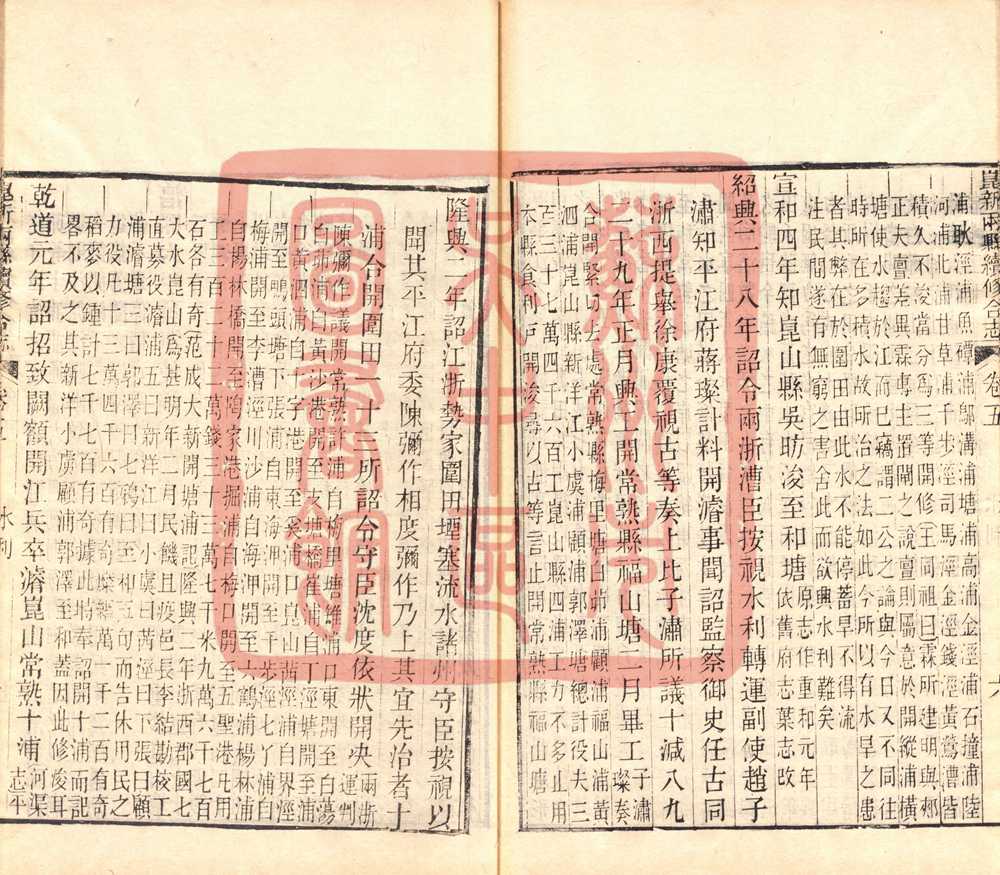 崑新兩縣續修合志 卷五 六
浦耿涇浦魚磾浦鄔溝浦塘浦高浦金涇浦石撞浦陸
河浦北浦甘草浦千步涇司馬涇金涇錢涇黃鶯漕皆
積久不浚當分爲三等開修王同祖曰霖所建明與郟
正夫亶差異霖專主置閘之說亶則屬意於開縱浦橫
塘使水趨於江而已竊謂二公之論與今日又不同往
時所在多積水故所治之法如此今所以有水旱之患
者其弊在於圍田由此水不能停蓄旱不得流
注民間遂有無窮之害舍此而欲興水利難矣
宣和四年知崑山縣吳昉浚至和塘依舊府志葉志改
原志作重和元年
紹興二十八年詔令兩浙漕臣按視水利轉運副使趙子
潚知平江府蔣璨計料開濬事聞詔監察御史任古同
浙西提舉徐康覆視古等奏上比子潚所議十減八九
二十九年正月興工開常熟縣福山塘二月畢工子潚璨奏
合開緊切去處常熟縣梅里塘白茆浦顧浦福山浦黃
泗浦崑山縣新洋江小虞浦顧浦郭澤塘總計役夫三
百三十七萬四千六百工崑山縣四浦工力不多止用
本縣食利戶開浚尋以任古等言止開常熟縣福山塘
隆興二年詔江浙勢家圍田堙塞流水諸州守臣按視以
聞其平江府委陳彌作相度彌作乃上其宜先治者十
浦合開圍田一十三所詔令守臣沈度依狀開決兩浙運判
陳彌作議開常熟許浦自梅里塘雉浦口東開至白蕩
白茆浦自黃沙港開至支塘橋崔浦自丁涇塘開至浦
口黃泗浦自十字港開至奚浦口崑山茜涇浦自界涇
開至鴨頭塘下張浦自東海口開至千步涇七丫浦自
梅浦開至李漕涇川沙浦自海浦開至六鶴浦楊林浦
自楊林橋開至陶家港掘浦自梅口開至五聖港凡用
工三百二十二萬錢三十三萬七千米九萬六千七百
石各有奇范成大新開塘浦記隆興二年浙西郡國七
大水崑山爲甚明年二月民饑且疫邑長李結勘校工
直募役濬浦五曰新洋江曰小虞曰茜涇曰下張曰顧
浦濬塘三曰郭澤曰七鴉曰至和五旬而告休用民之
力凡十三萬四千六百有奇糜糴萬一千二百有奇
稻麥以鍾計七千七百有奇據此塘奉詔開十浦而記
界不及之其新洋小虞顧浦郭澤至和蓋因此修浚耳
乾道元年詔招致闕額開江兵卒濬崑山常熟十浦河渠志平
崑新兩縣續修合志 卷五 水利